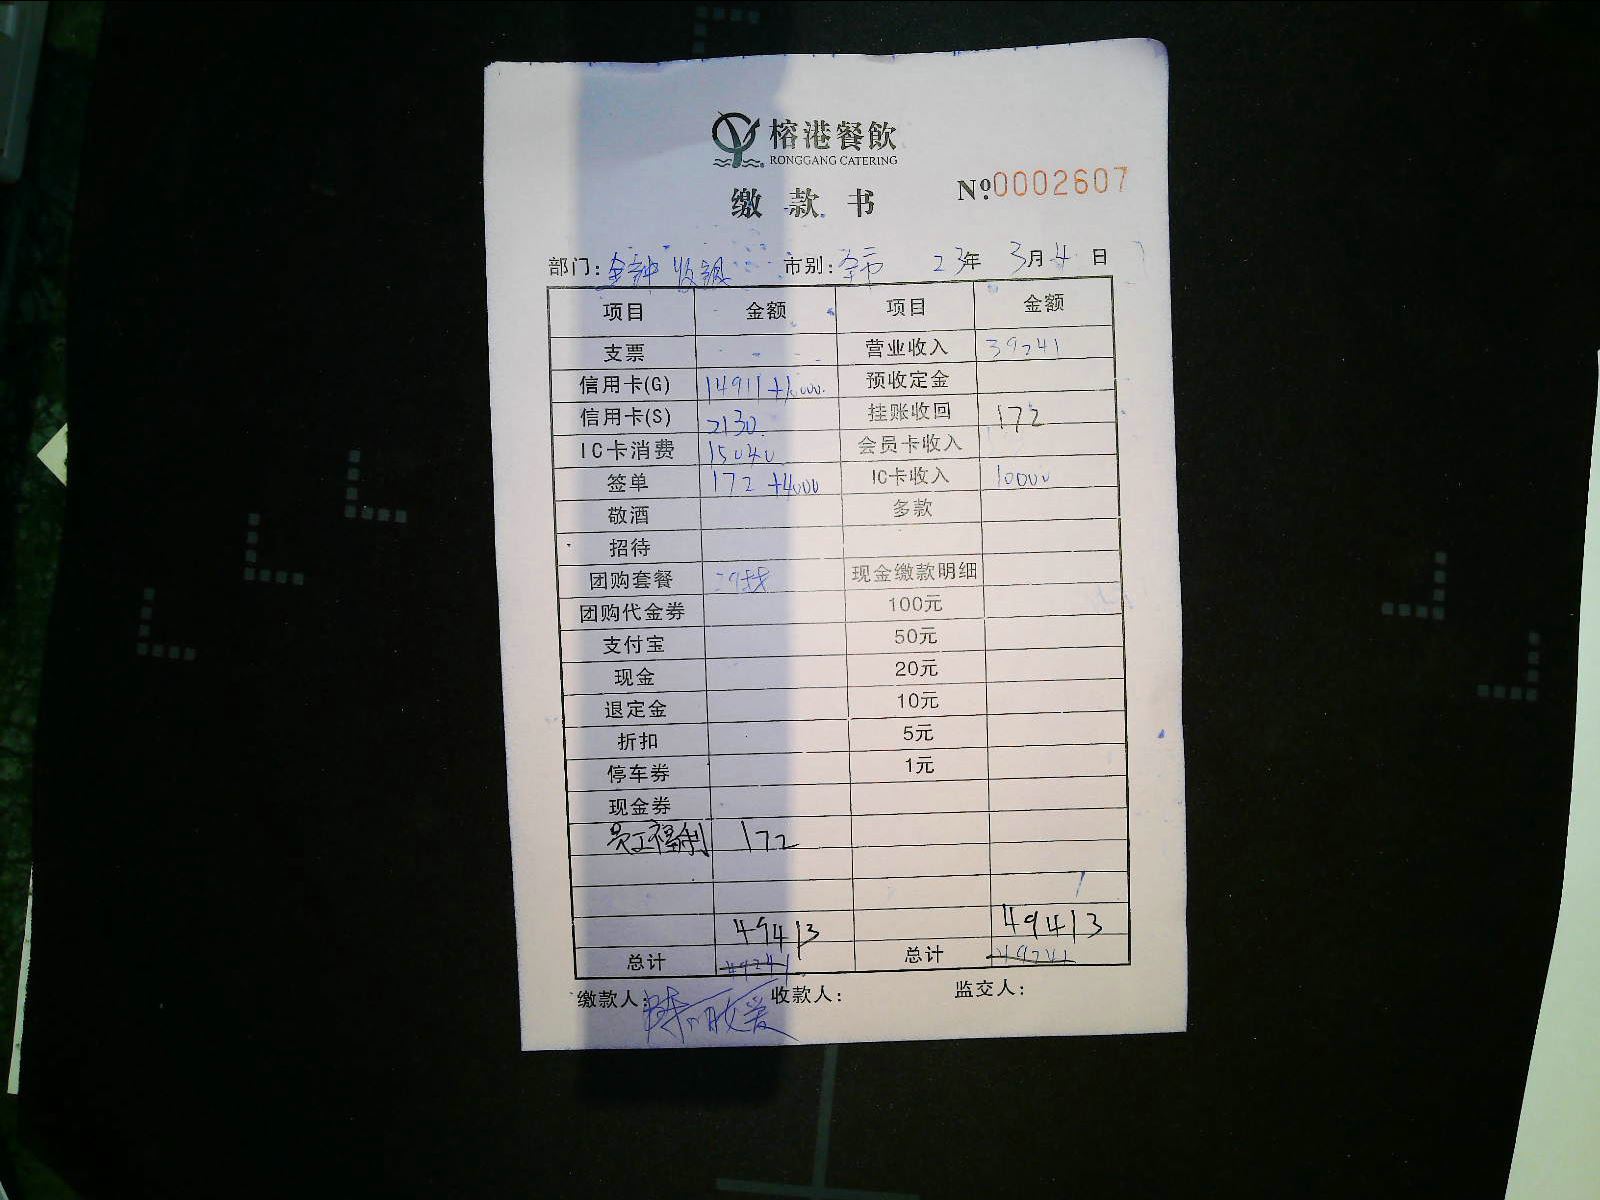 榕港餐飲
RONGGANG CATERING
缴款书
№0002607
部门: 金钟 收银 市别: 全市 23年 3月4日
项目 金额 项目 金额
支票 营业收入 39241
信用卡(G) 14911+10000 预收定金
信用卡(S) 2130 挂账收回 172
IC卡消费 15040 会员卡收入
签单 172+4000 IC卡收入 10000
敬酒 多款
招待
团购套餐 2988 现金缴款明细
团购代金券 100元
支付宝 50元
现金 20元
退定金 10元
折扣 5元
停车券 1元
现金券
员工福利 172
49413 49413
总计 49241 总计 49241
缴款人: 收款人: 监交人: